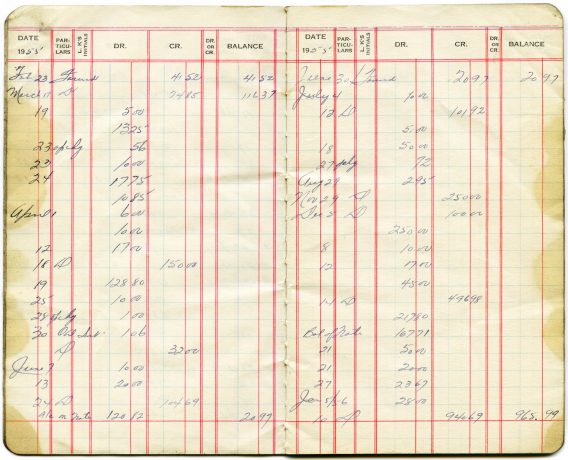 DATE 1955 PAR-TICU-LARS L. K'S INITIALS DR. CR. DR. OR CR. BALANCE
Feb 23 Forward 41 52 41 52
March 11 D 74 85 116 37
19 5 00
13 25
23 56
23 10 00
24 17 75
10 85
April 1 6 00
10 00
12 17 00
18 D 150 00
19 128 80
25 10 00
28 1 00
30 1 06
D 32 00
June 7 10 00
13 20 00
24 D 104 69
on Note 120 82 20 97
DATE 1955 PAR-TICU-LARS L. K'S INITIALS DR. CR. DR. OR CR. BALANCE
June 30 Forward 20 97 20 97
July 4 10 00
12 D 101 92
5 00
18 50 00
27 72
Aug 29 2 95
Nov 29 D 250 00
Dec 5 D 100 00
250 00
8 10 00
12 17 00
45 00
14 D 496 98
217 80
Bal of Note 167 71
21 50 00
21 20 00
27 23 67
Jan 5/56 28 00
10 D 946 69 968 99